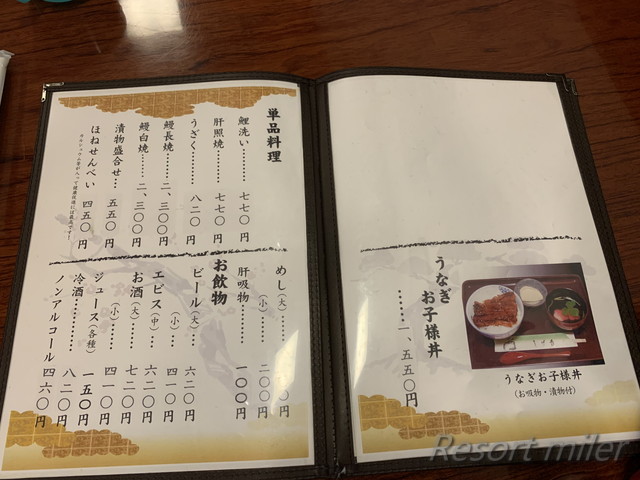 単品料理
鯉洗い………七七〇円
肝照焼………七七〇円
うざく………八二〇円
鰻長焼……二、三〇〇円
鰻白焼……二、三〇〇円
漬物盛合せ…五五〇円
ほねせんべい 四五〇円
めし(大)……〇円
(小)……二〇〇円
肝吸物………一〇〇円
お飲物
ビール(大)…六二〇円
(小)…四一〇円
エビス(中)…六二〇円
お酒(大)…七二〇円
(小)…四一〇円
ジュース(各種) 一五〇円
冷酒………八二〇円
ノンアルコール 四六〇円
うなぎ
お子様丼
……一、五五〇円
うなぎお子様丼
(お吸物・漬物付)
Resort miler